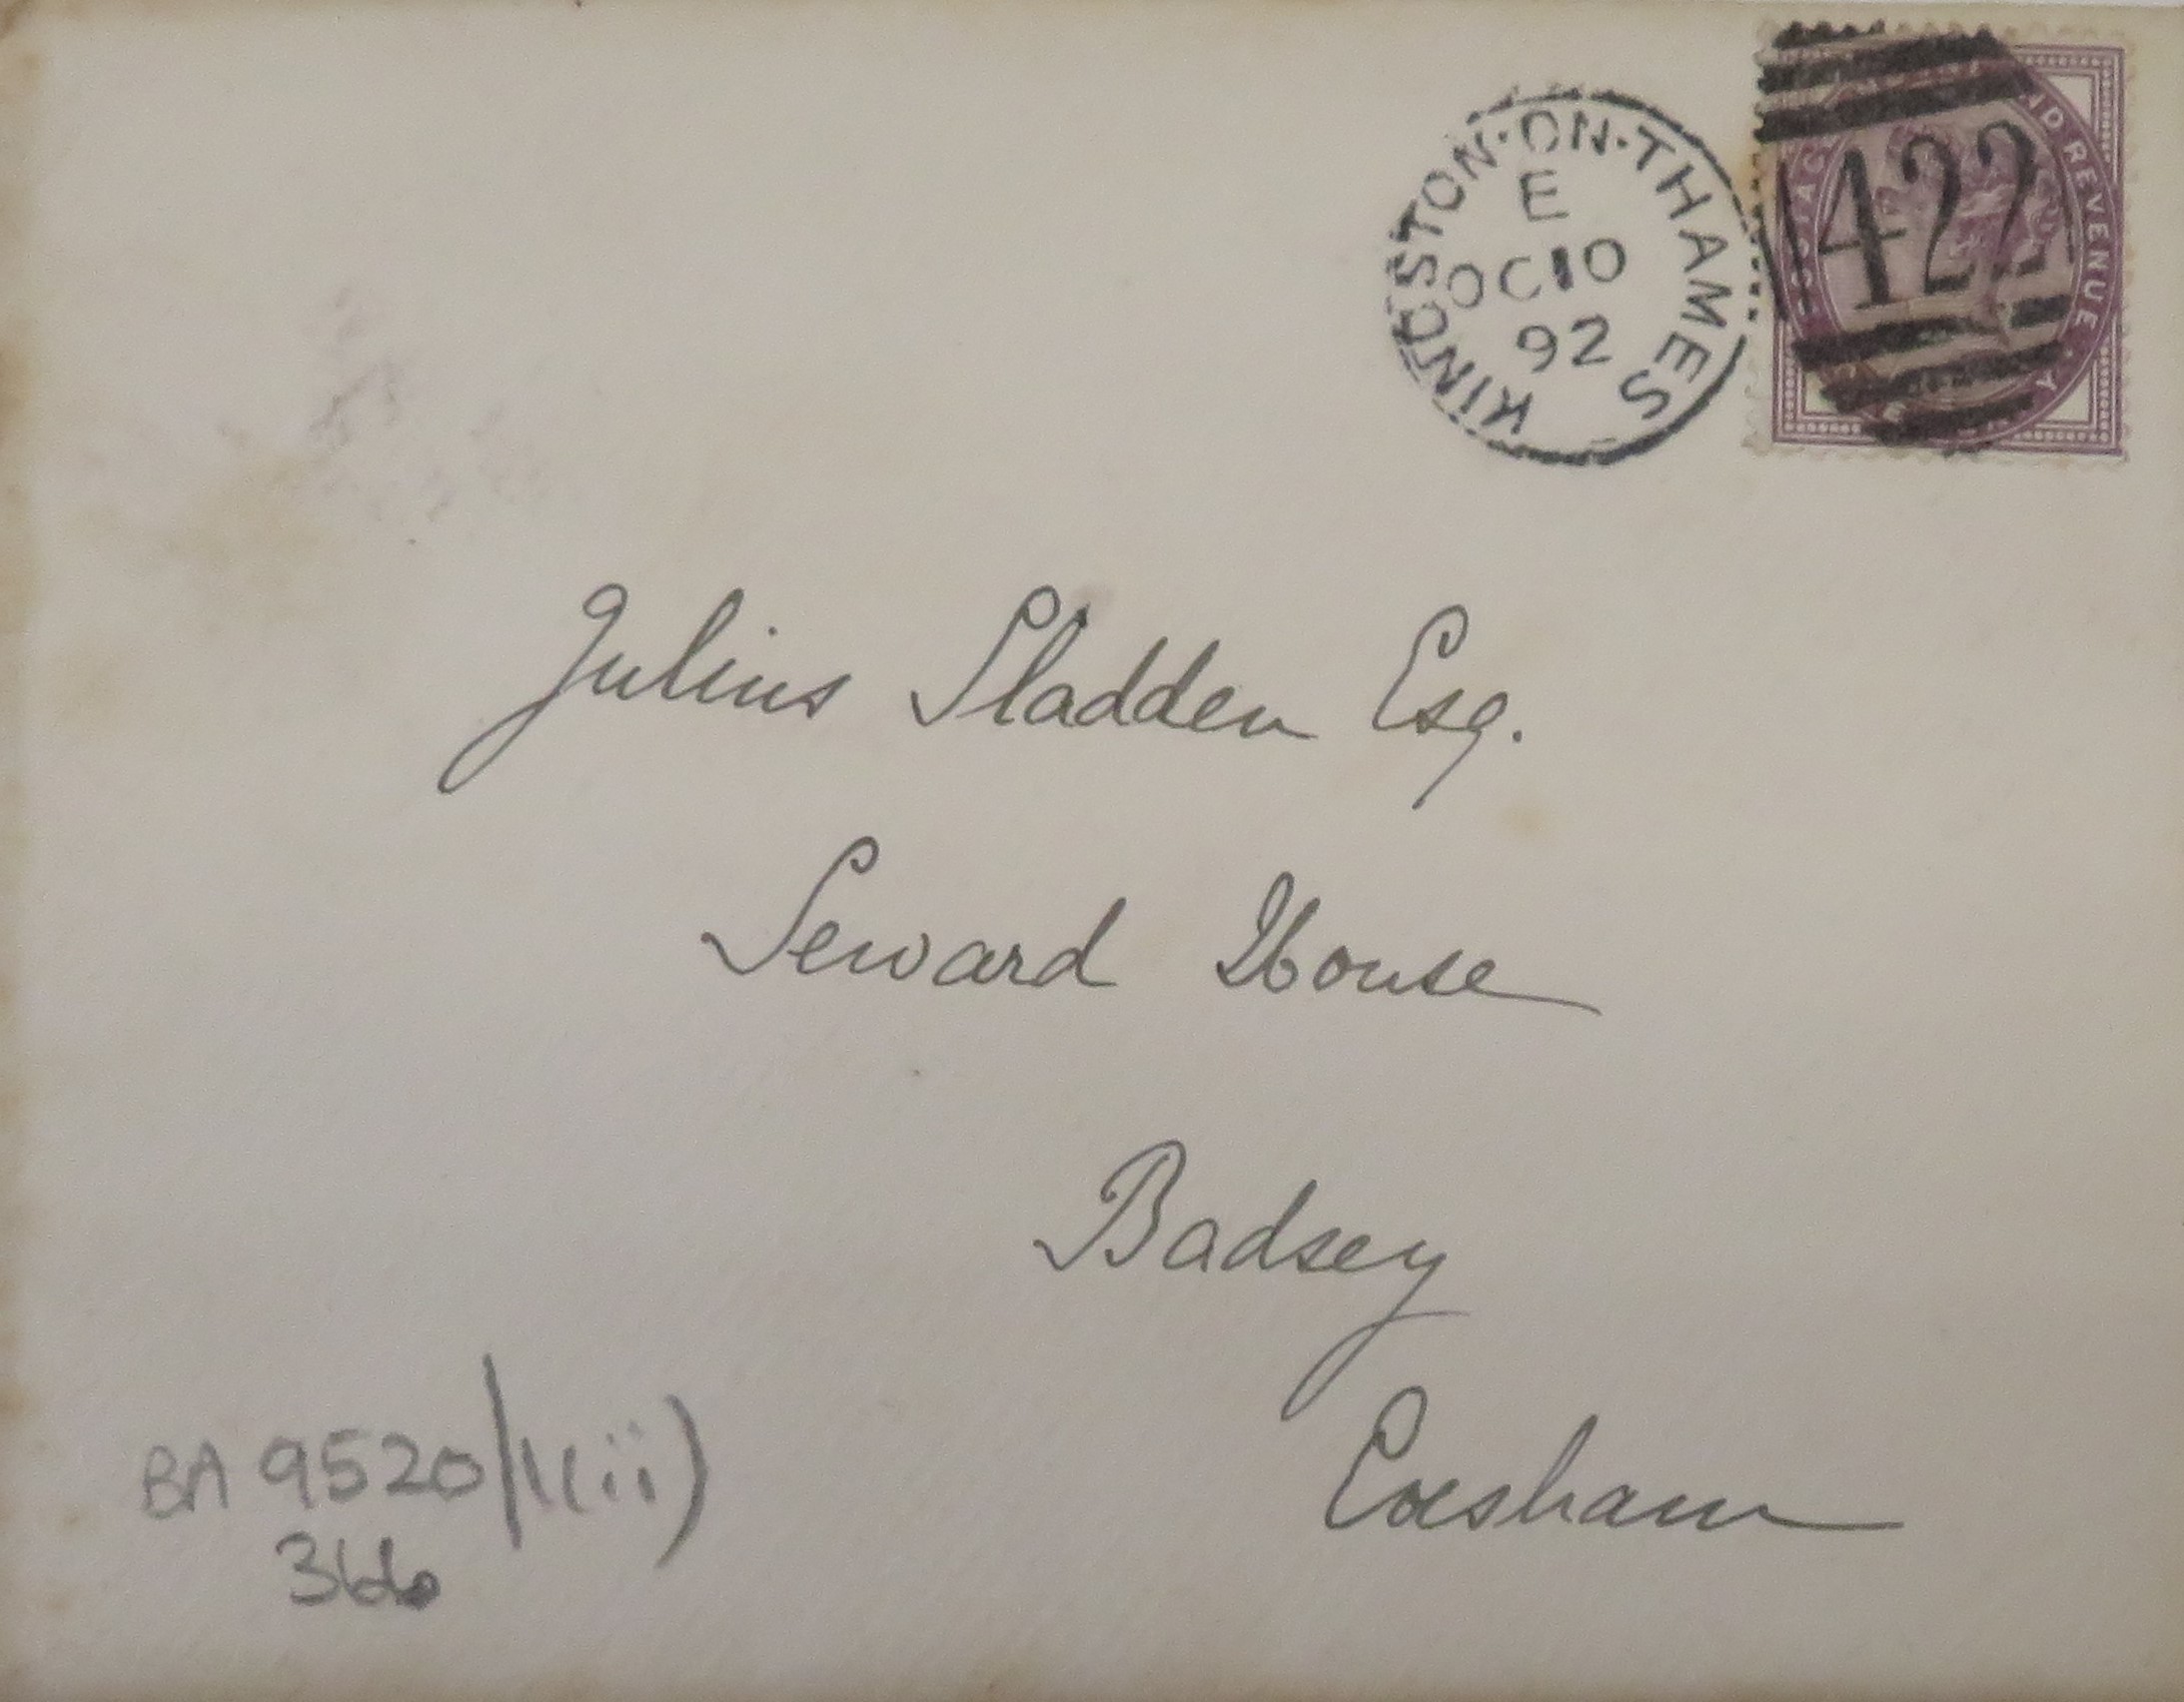 KINGSTON·ON·THAMES
E
OC 10
92
422
REVENUE
Julius Sladden Esq.
Seward House
Badsey
Evesham
BA 9520/1(ii)
366